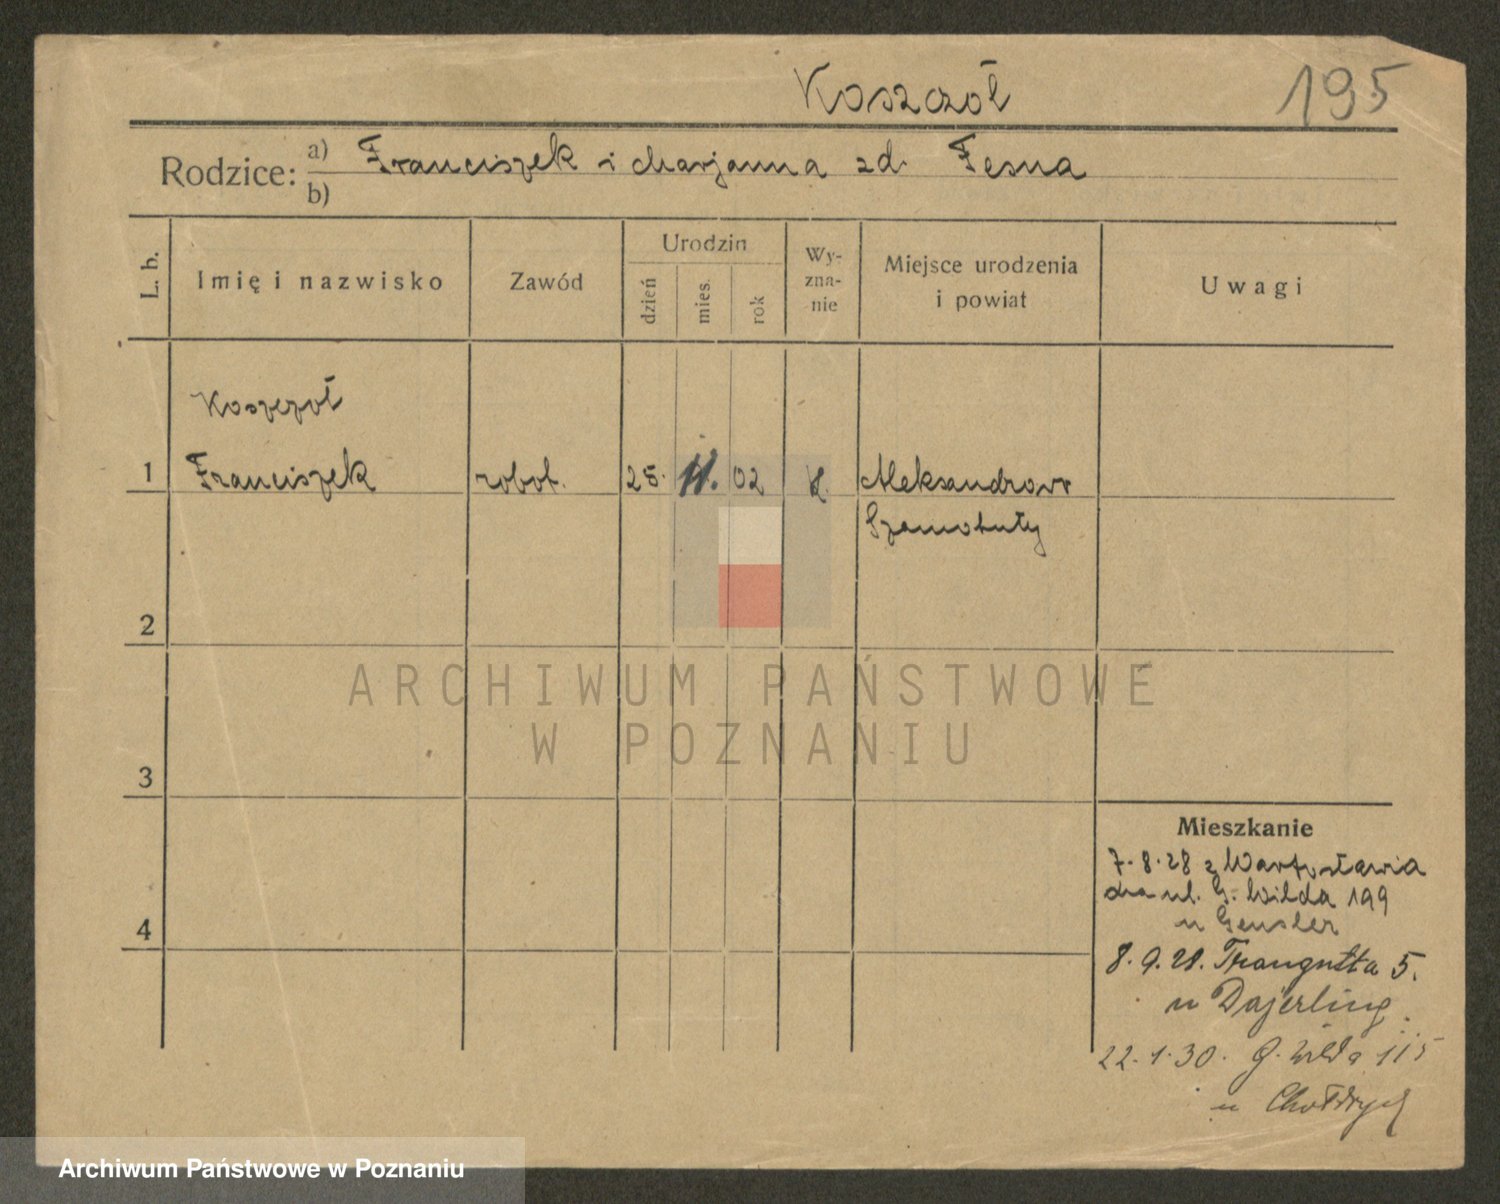 Koszczoł
195
Rodzice: a) Franciszek i Marjanna zd. Fesna
b)
L. b.
Imię i nazwisko
Zawód
Urodzin
dzień
mies.
rok
Wy-
zna-
nie
Miejsce urodzenia
i powiat
Uwagi
Koszczoł
1 Franciszek robot. 25. 11. 02 k. Aleksandrow
Szamotuły
2
ARCHIWUM PAŃSTWOWE
W POZNANIU
3
Mieszkanie
7.8.28 z Wartosławia
na ul. G. Wilda 199
u Gensler
4
8.9.28. Traugutta 5.
u Dajerling.
22.1.30. G. Wilda 115
u
Archiwum Państwowe w Poznaniu